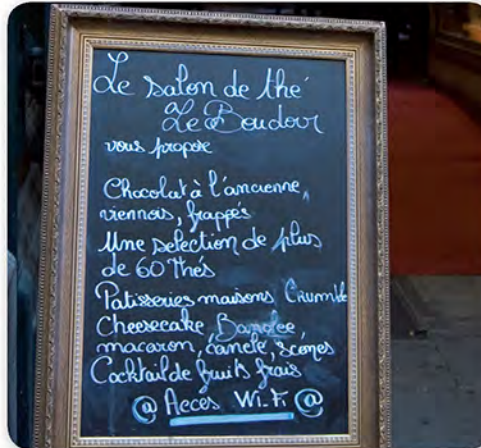 Le salon de thé
Le Boudoir
vous propose
Chocolat à l'ancienne,
viennois, frappés
Une selection de plus
de 60 Thés
Patisseries maisons Crumble
Cheesecake,
macaron, canelé, scones
Cocktail de fruits frais
@ Acces Wi.Fi @